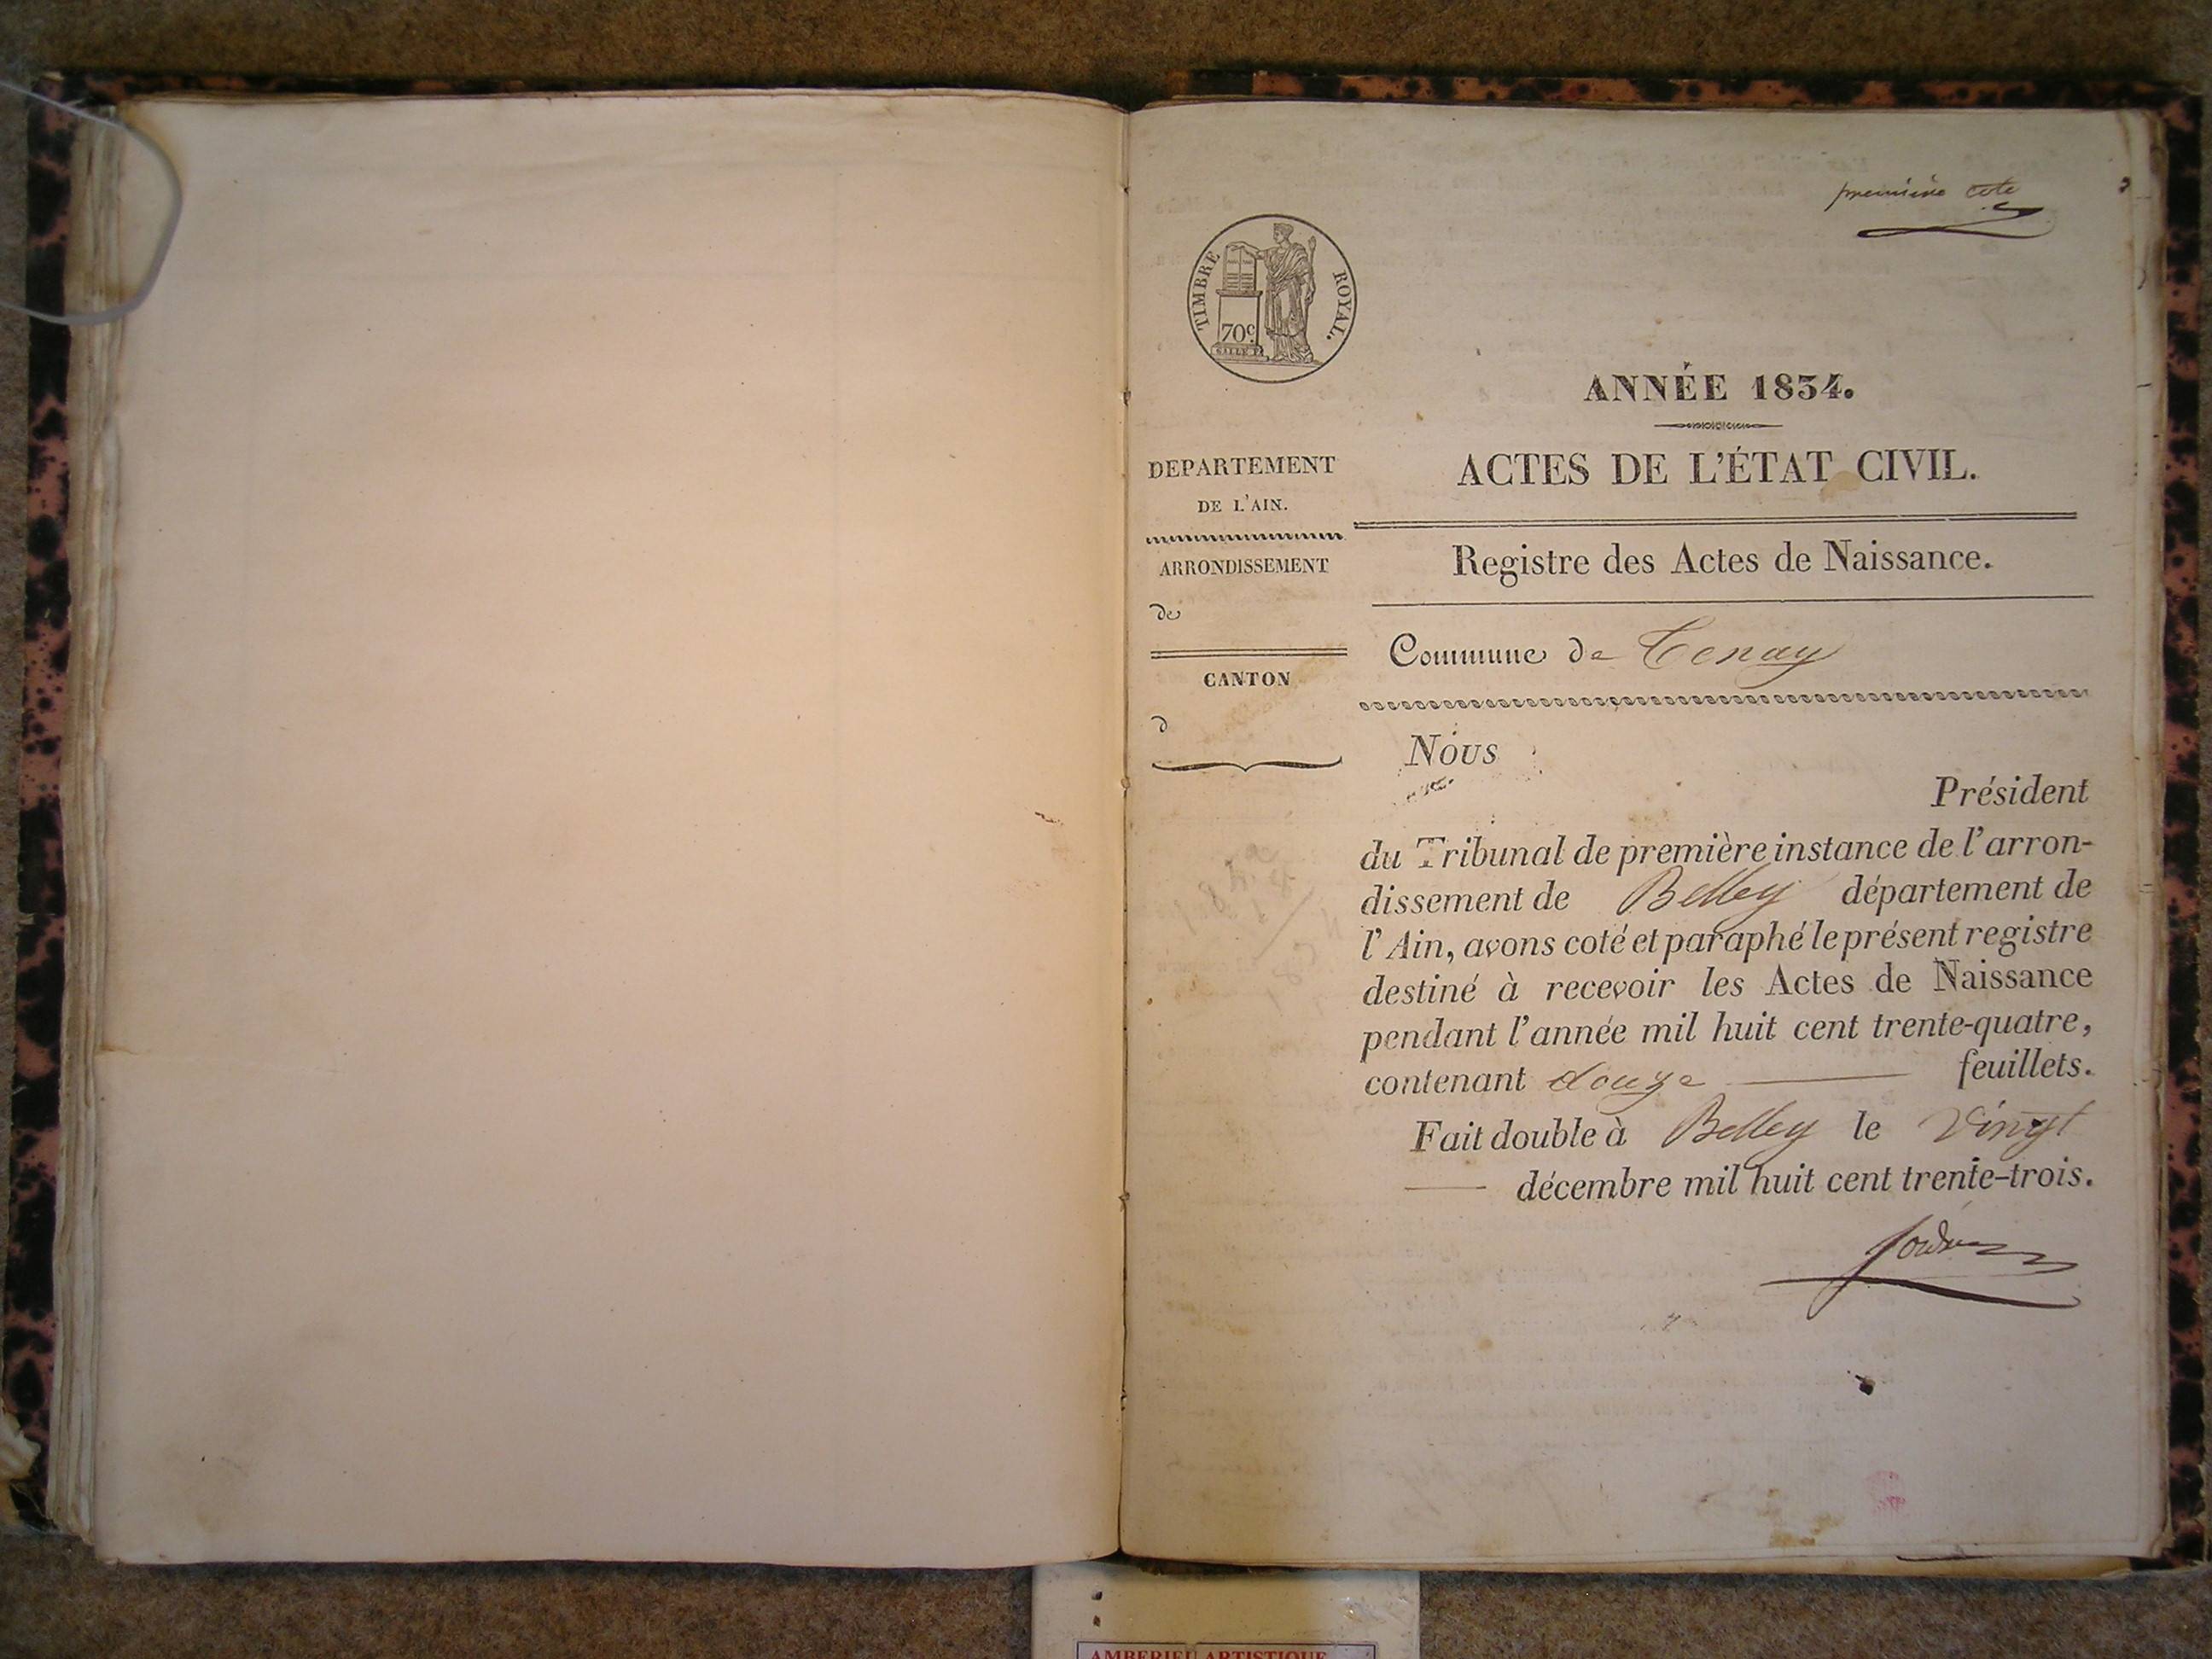 première cote
TIMBRE ROYAL.
70c.
ANNÉE 1834.
ACTES DE L'ÉTAT CIVIL.
DEPARTEMENT
DE L'AIN.
ARRONDISSEMENT
de
CANTON
d
Registre des Actes de Naissance.
Commune de Tenay
Nous
Président
du Tribunal de première instance de l'arron-
dissement de Belley département de
l'Ain, avons coté et paraphé le présent registre
destiné à recevoir les Actes de Naissance
pendant l'année mil huit cent trente-quatre,
contenant douze feuillets.
Fait double à Belley le Vingt
décembre mil huit cent trente-trois.
AMBERIEU ARTISTIQUE